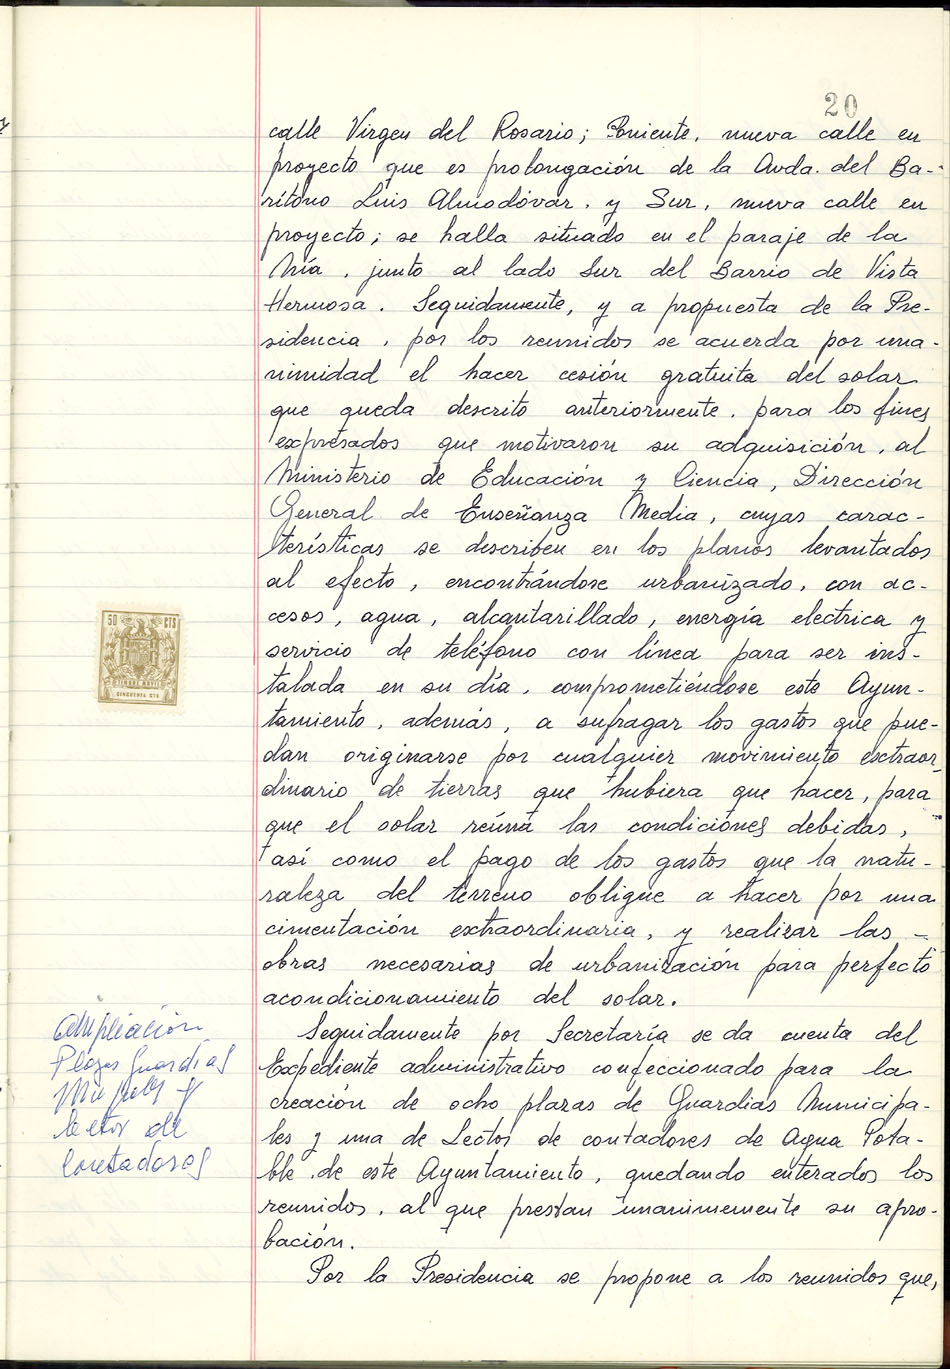 20
calle Virgen del Rosario; Poniente, nueva calle en
proyecto que es prolongación de la Avda. del Ba-
rítono Luis Almodóvar, y Sur, nueva calle en
proyecto; se halla situado en el paraje de la
Mía, junto al lado Sur del Barrio de Vista
Hermosa. Seguidamente, y a propuesta de la Pre-
sidencia, por los reunidos se acuerda por una-
nimidad el hacer cesión gratuita del solar
que queda descrito anteriormente, para los fines
expresados que motivaron su adquisición, al
Ministerio de Educación y Ciencia, Dirección
General de Enseñanza Media, cuyas carac-
terísticas se describen en los planos levantados
al efecto, encontrándose urbanizado, con ac-
cesos, agua, alcantarillado, energía electrica y
servicio de teléfono con línea para ser ins-
talada en su día, comprometiéndose este Ayun-
tamiento, además, a sufragar los gastos que pue-
dan originarse por cualquier movimiento extraor-
dinario de tierras que hubiera que hacer, para
que el solar reúna las condiciónes debidas,
así como el pago de los gastos que la natu-
raleza del terreno obligue a hacer por una
cimentación extraordinaria, y realizar las -
obras necesarias de urbanización para perfecto
acondicionamiento del solar.
Seguidamente por Secretaría se da cuenta del
Expediente administrativo confeccionado para la
creación de ocho plazas de Guardias Municipa-
les y una de Lector de contadores de Agua Pota-
ble de este Ayuntamiento, quedando enterados los
reunidos, al que prestan unanimemente su apro-
bación.
Por la Presidencia se propone a los reunidos que,
50 CTS
TIMBRE MOVIL
CINCUENTA CTS
Ampliación
Plazas Guardias
Mupales y
lector de
Contadores